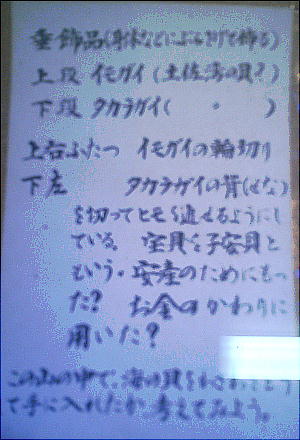 垂飾品(身体などにぶらさげて飾る)
上段 イモガイ(土佐湾の貝?)
下段 タカラガイ( 〃 )
上右ふたつ イモガイの輪切り
下左 タカラガイの背(せな)
を切ってヒモを通せるようにし
ている。 宝貝を子安貝と
もいう。安産のためにもっ
た? お金のかわりに
用いた?
この山の中で、海の貝を
て手に入れたか考えてみよう。